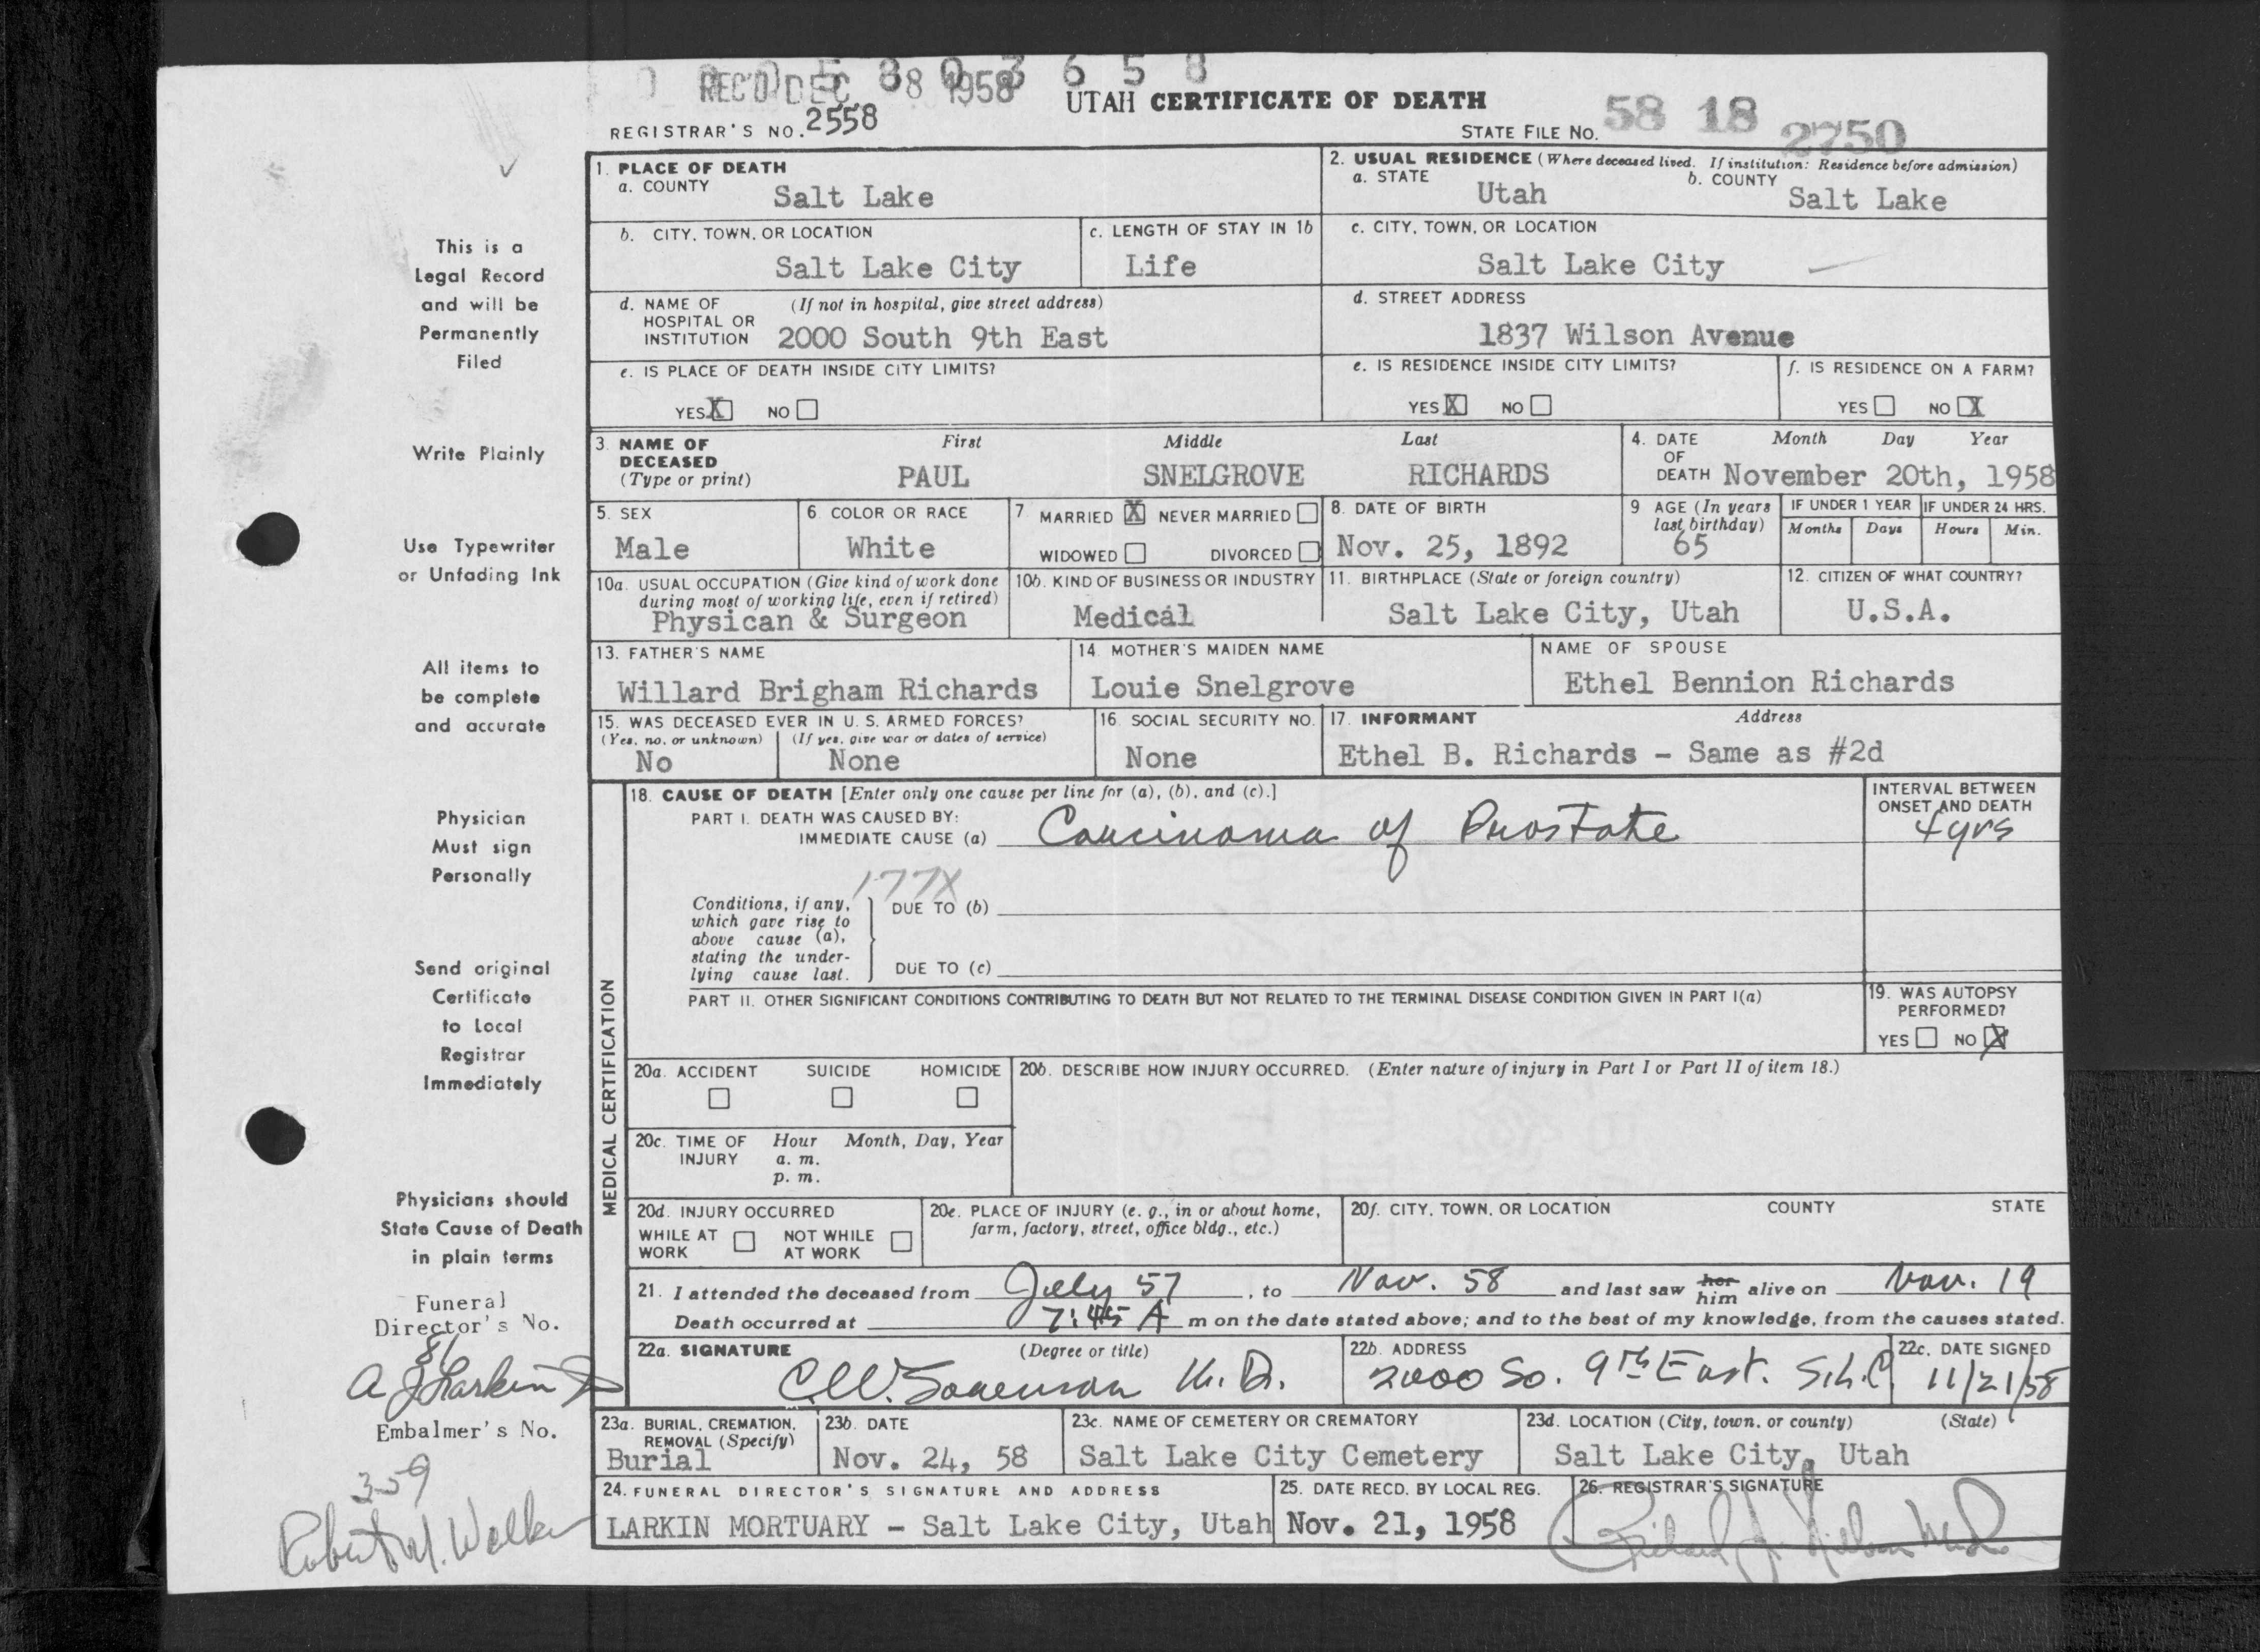 REC'D DEC 8 1958
UTAH CERTIFICATE OF DEATH
REGISTRAR'S NO. 2558
STATE FILE NO. 58 18 2750
1. PLACE OF DEATH
a. COUNTY Salt Lake
2. USUAL RESIDENCE (Where deceased lived. If institution: Residence before admission)
a. STATE Utah b. COUNTY Salt Lake
b. CITY, TOWN, OR LOCATION Salt Lake City
c. LENGTH OF STAY IN 1b Life
c. CITY, TOWN, OR LOCATION Salt Lake City
d. NAME OF HOSPITAL OR INSTITUTION (If not in hospital, give street address) 2000 South 9th East
d. STREET ADDRESS 1837 Wilson Avenue
e. IS PLACE OF DEATH INSIDE CITY LIMITS?
YES X NO
e. IS RESIDENCE INSIDE CITY LIMITS?
YES X NO
f. IS RESIDENCE ON A FARM?
YES NO X
3. NAME OF DECEASED (Type or print)
First Middle Last
PAUL SNELGROVE RICHARDS
4. DATE OF DEATH Month Day Year
November 20th, 1958
5. SEX Male
6. COLOR OR RACE White
7 MARRIED X NEVER MARRIED
WIDOWED DIVORCED
8. DATE OF BIRTH Nov. 25, 1892
9 AGE (In years last birthday) 65
IF UNDER 1 YEAR Months Days
IF UNDER 24 HRS. Hours Min.
10a. USUAL OCCUPATION (Give kind of work done during most of working life, even if retired)
Physican & Surgeon
10b. KIND OF BUSINESS OR INDUSTRY
Medical
11. BIRTHPLACE (State or foreign country)
Salt Lake City, Utah
12. CITIZEN OF WHAT COUNTRY?
U.S.A.
13. FATHER'S NAME
Willard Brigham Richards
14. MOTHER'S MAIDEN NAME
Louie Snelgrove
NAME OF SPOUSE
Ethel Bennion Richards
15. WAS DECEASED EVER IN U. S. ARMED FORCES?
(Yes, no, or unknown) (If yes, give war or dates of service)
No None
16. SOCIAL SECURITY NO.
None
17. INFORMANT Address
Ethel B. Richards - Same as #2d
MEDICAL CERTIFICATION
18. CAUSE OF DEATH [Enter only one cause per line for (a), (b), and (c).]
PART I. DEATH WAS CAUSED BY:
IMMEDIATE CAUSE (a) Carcinoma of Prostate
INTERVAL BETWEEN ONSET AND DEATH
4 yrs
177X
Conditions, if any, which gave rise to above cause (a), stating the underlying cause last.
DUE TO (b)
DUE TO (c)
PART II. OTHER SIGNIFICANT CONDITIONS CONTRIBUTING TO DEATH BUT NOT RELATED TO THE TERMINAL DISEASE CONDITION GIVEN IN PART I(a)
19. WAS AUTOPSY PERFORMED?
YES NO X
20a. ACCIDENT SUICIDE HOMICIDE
20b. DESCRIBE HOW INJURY OCCURRED. (Enter nature of injury in Part I or Part II of item 18.)
20c. TIME OF INJURY Hour Month, Day, Year
a. m.
p. m.
20d. INJURY OCCURRED
WHILE AT WORK NOT WHILE AT WORK
20e. PLACE OF INJURY (e. g., in or about home, farm, factory, street, office bldg., etc.)
20f. CITY, TOWN, OR LOCATION COUNTY STATE
21. I attended the deceased from July 57, to Nov. 58 and last saw her him alive on Nov. 19
Death occurred at 7:45 A m on the date stated above; and to the best of my knowledge, from the causes stated.
22a. SIGNATURE (Degree or title)
C.W. Sorenson M.D.
22b. ADDRESS
2000 So. 9th East. S.L.C.
22c. DATE SIGNED
11/21/58
23a. BURIAL, CREMATION, REMOVAL (Specify)
Burial
23b. DATE
Nov. 24, 58
23c. NAME OF CEMETERY OR CREMATORY
Salt Lake City Cemetery
23d. LOCATION (City, town, or county) (State)
Salt Lake City, Utah
24. FUNERAL DIRECTOR'S SIGNATURE AND ADDRESS
LARKIN MORTUARY - Salt Lake City, Utah
25. DATE RECD. BY LOCAL REG.
Nov. 21, 1958
26. REGISTRAR'S SIGNATURE
This is a
Legal Record
and will be
Permanently
Filed
Write Plainly
Use Typewriter
or Unfading Ink
All items to
be complete
and accurate
Physician
Must sign
Personally
Send original
Certificate
to Local
Registrar
Immediately
Physicians should
State Cause of Death
in plain terms
Funeral
Director's No.
81
A J Larkin
Embalmer's No.
359
Robert M. Walker